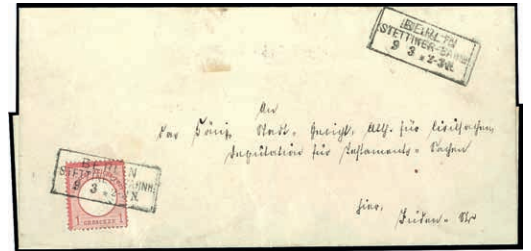 BERLIN
STETTINER-BAHNH.
9 3 * 2-3N.
An
das Königl. Stadt-Gericht, Abth. für Civilsachen
Deputation für Testaments-Sachen
hier,
Jüden-Str
BERLIN
STETTIN BAHNH.
9 3 N.
1 GROSCHEN 1